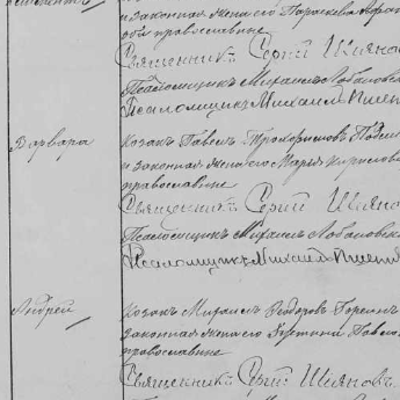 и законная жена его Параскева
оба православные
Священникъ Сергій Шияновъ
Псаломщикъ Михаилъ Лобановск
Псаломщикъ Михаилъ Пщен
Варвара
Козакъ Павелъ Трохѳимовъ
и законная жена его Марья Кирилова
православные
Священникъ Сергій Шиянов
Псаломщикъ Михаилъ Лобановск
Псаломщикъ Михаилъ Пщен
Андрей
Козакъ Михаилъ Ѳеодоровъ
законная жена его Іустина Павло
православные
Священникъ Сергій Шияновъ